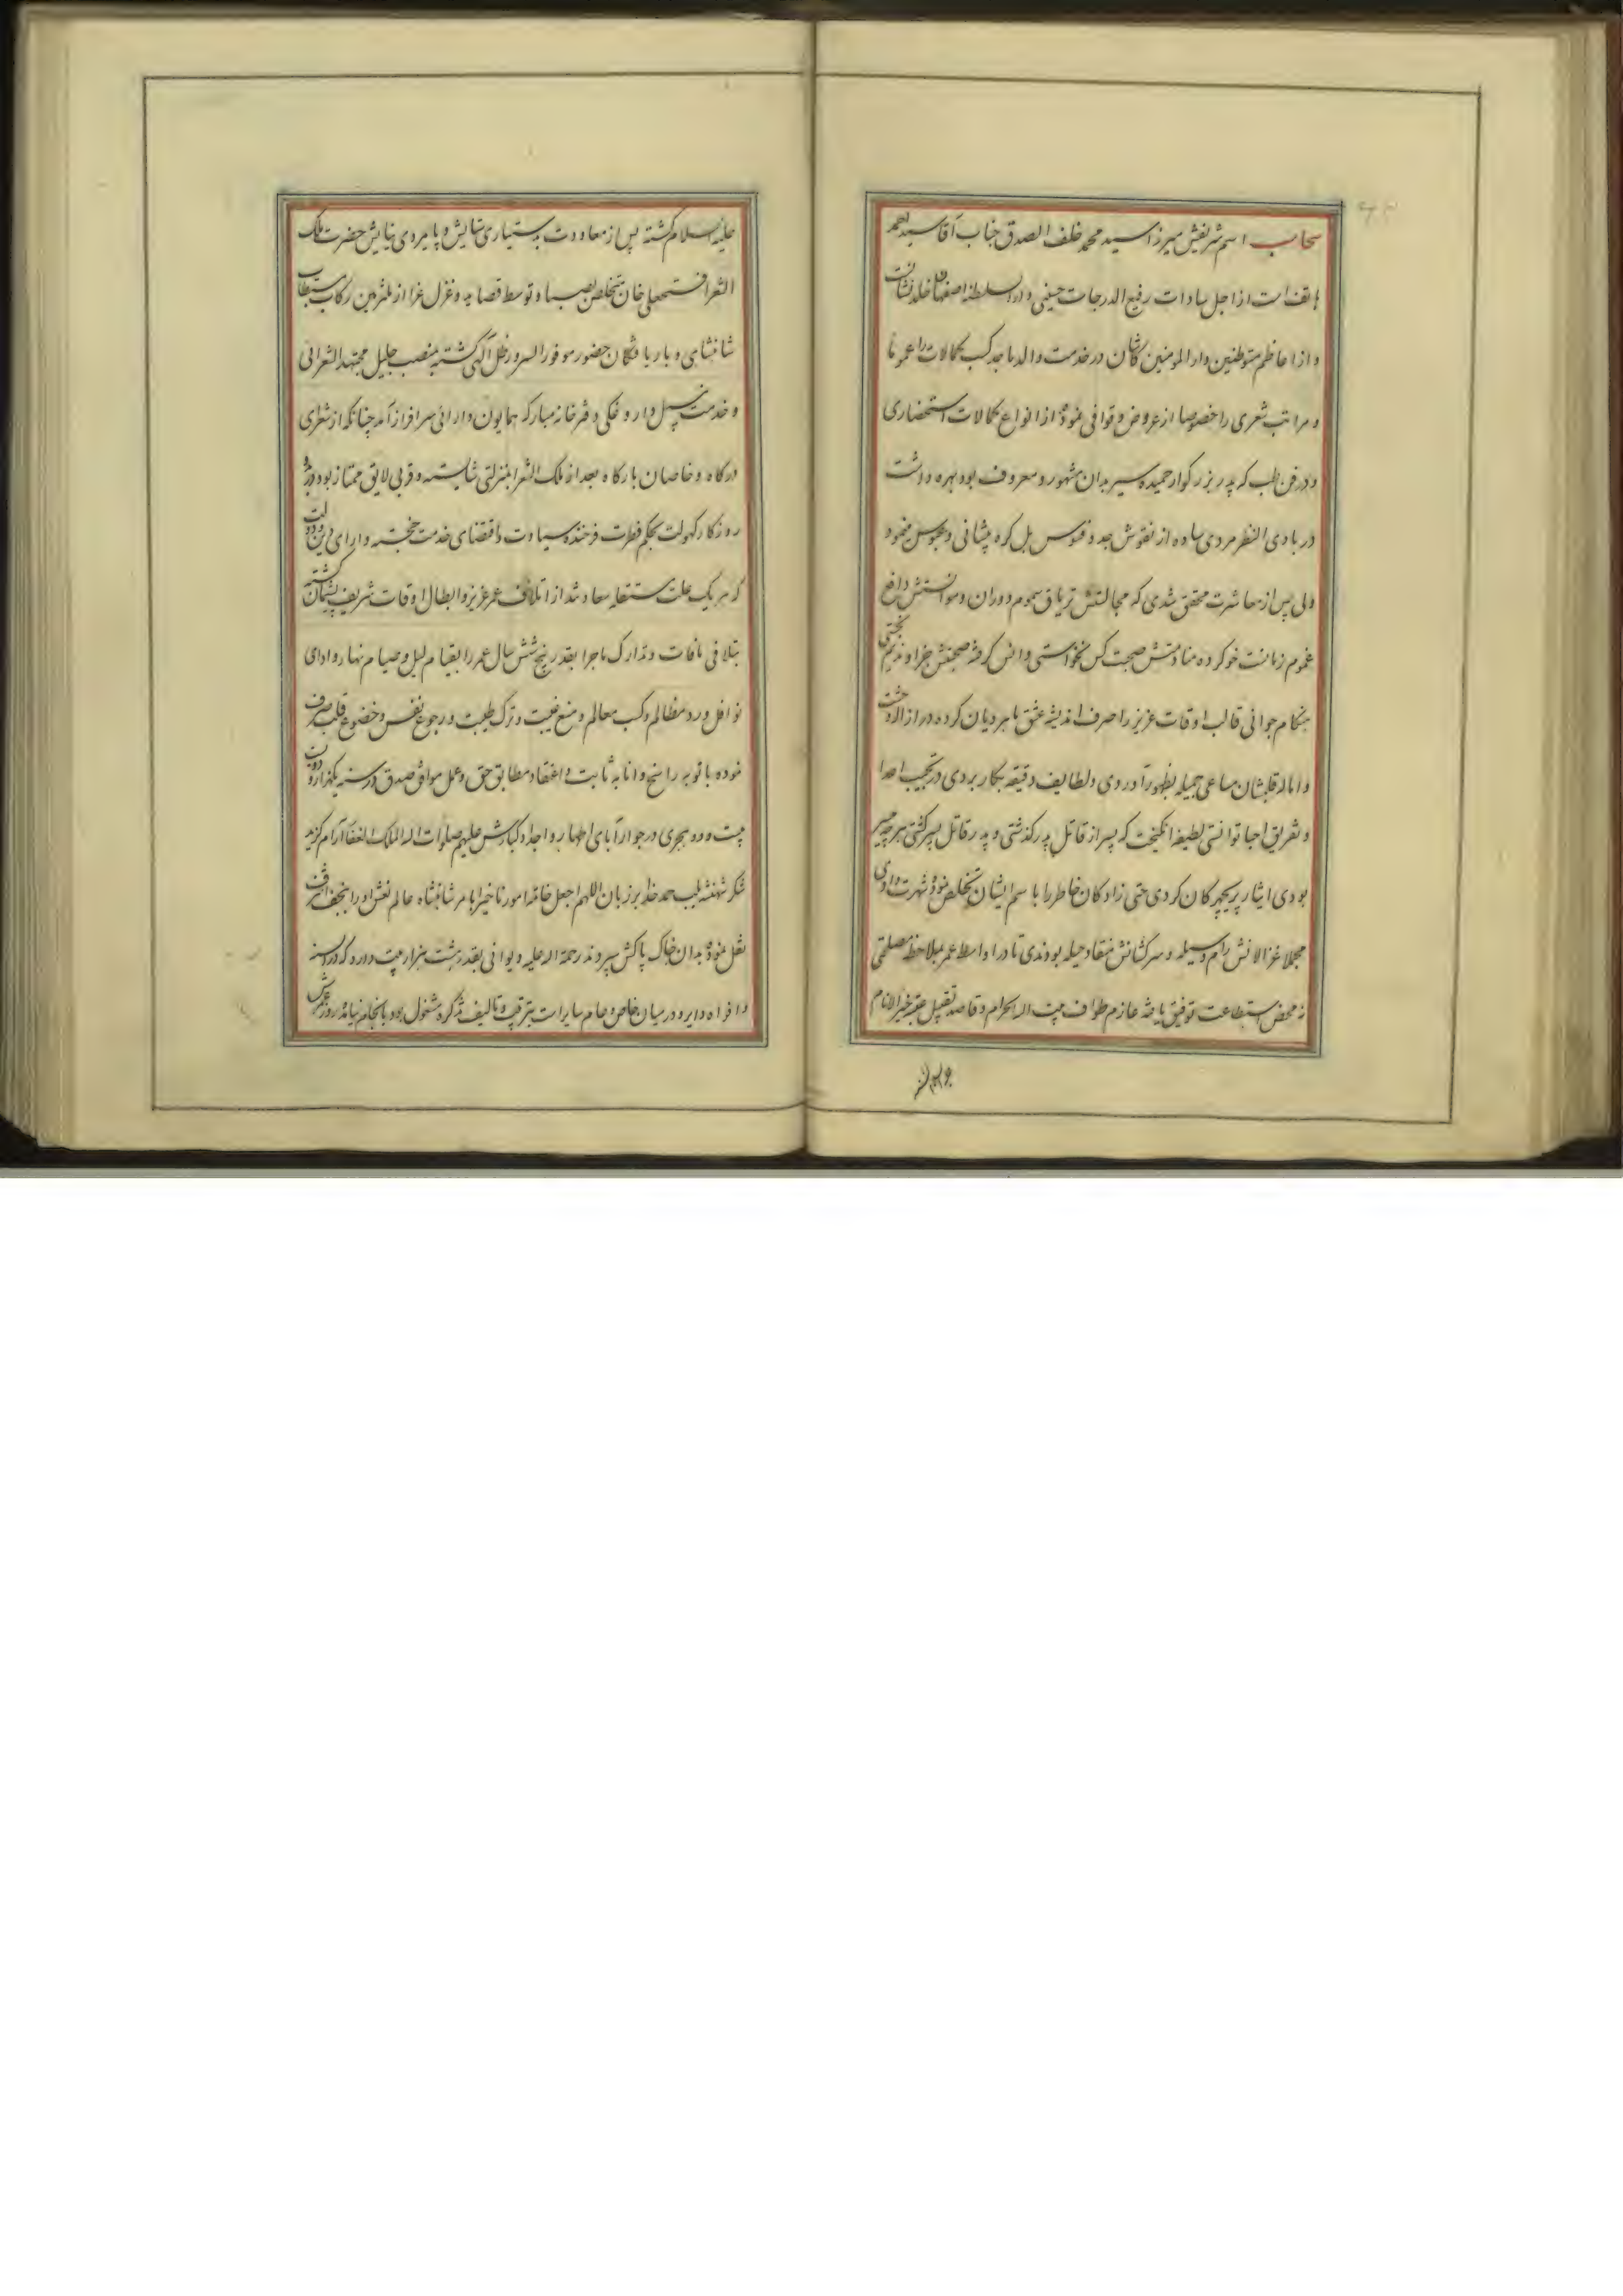 سحاب اسم شریفش میرزا سید محمد خلف الصدق جناب آقا سید احمد
هاتف است از اجل سادات رفیع الدرجات حسینی دار السلطنه اصفهان خلد نشان است
و از اعاظم متوطنین دار المومنین کاشان در خدمت والد ماجد کسب کمالات را عموما
و مراتب شعری را خصوصا از عروض و قوافی نموده از انواع کمالات استحضاری
و در فن طب که پدر بزرگوار حمیده سیر بدان مشهور و معروف بود بهره داشت
در بادی النظر مردی ساده از نقوش جد و فسوس بل گره پیشانی و عبوس مینمود
ولی پس از معاشرت محقق شدی که مجالستش تریاق سموم دوران و موانستش دافع
غموم زمانست خو کرده منادمتش صحبت کس نخواستی و انس گرفته صحبتش جز او ندیم نجستی
هنگام جوانی قالب اوقات عزیز را صرف اندیشه عشق ماهرویان کرده در ازاله وحشت
و اماله قلبشان مساعی جمیله بظهور آوردی و لطایف دقیقه بکار بردی در تحبیب اعدا
و تفریق احبا توانستی لطیفه انگیخت که پسر از قاتل پدر گذشتی و پدر قاتل پسر گشتی هر چه میسر
بودی ایثار پریچهرگان کردی حتی زادگان خاطر را با سم ایشان تخلص نموده شهرت دادی
مجملا غزالانش رام وسیله و سرکشانش منقاد حیله بودندی تا در اواسط عمر بملاحظه مصلحتی
نه محض استطاعت توفیق یافته عازم طواف بیت الله الحرام و قاصد تقبیل عتبه خیر الانام
علیه السلام گشته پس از معاودت بدستیاری ستایش و پایمردی نیایش حضرت ملک
الشعرا فتحعلی خان متخلص بصبا و توسط قصاید و غزل غرا از ملتزمین رکاب مستطاب
شاهنشاهی و باریافتگان حضور موفور السرور ظل آلهی گشته بمنصب جلیل مجتهد الشعرائی
و خدمت نبیل داروغگی دفترخانه مبارکه همایون دارائی سرافراز آمد چنانکه از شعرای
درگاه و خاصان بارگاه بعد از ملک الشعرا بمنزلتی شایسته و قربی لایق ممتاز بود در
روزگار کهولت بحکم فطرت فرخنده سیادت و اقتضای خدمت خجسته دارای دین و دولت
که هر یک علت مستقله سعادتند از اتلاف عمر عزیز و ابطال اوقات شریف پشیمان گشته
بتلافی مافات و تدارک ماجرا بقدر پنج شش سال عمر را بقیام لیل و صیام نهار و ادای
نوافل و رد مظالم و کسب معالم و منع غیبت و ترک طیبت و رجوع نفس و خضوع قلب صرف
نموده با توبه راسخ و انابه ثابت و اعتقاد مطابق حق و عمل موافق صدق در سنه یکهزار و دویست
بیست و دو هجری در جوار آبای اطهار و اجداد کبارش علیهم صلوات الله الملک الغفار آرام گزید
شکر شهنشه بلب حمد خدا بر زبان اللهم اجعل خاتمة امورنا خیرا بامر شاهنشاه عالم نعش او را بنجف اشرف
نقل نموده بدان خاک پاکش سپردند رحمة الله علیه دیوانی بقدر هشت هزار بیت دارد که در السنه
و افواه دایر و در میان خاص و عام سایر است بترتیب و تالیف تذکره مشغول بود بانجام نیامد روز عمرش